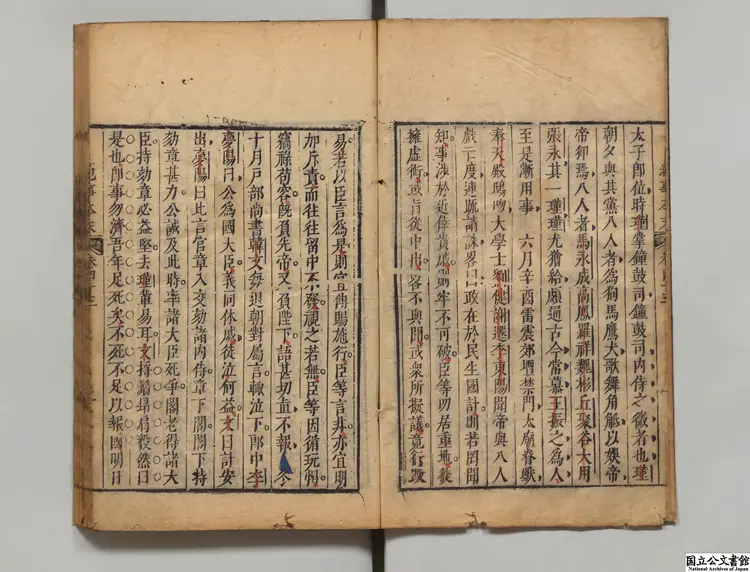 太子即位時瑾掌鐘鼓司鐘鼓司內侍之微者也瑾
朝夕與其黨八人者為狗馬鷹犬歌舞角觝以娛帝
帝狎焉八人者馬永成高鳳羅祥魏彬丘聚谷大用
張永其一瑾瑾尤獪給頗通古今常慕王振之為人
至是漸用事　六月辛酉雷震郊壇禁門太廟脊獸
奉天殿鴟吻大學士劉健謝遷李東陽聞帝與八人
戲亡度連疏請誅畧曰政在於民生國計則若罔聞
知事涉於近倖貴戚則牢不可破臣等叨居重地徒
擁虛銜或旨從中出畧不與聞或衆所擬議竟行改
易若以臣言為是則宜傳賜施行臣等言非亦宜明
加斥責而往往留中不發視之若無臣等因循玩愒
竊祿苟容旣負先帝又負陛下語甚切直不報　冬
十月戶部尚書韓文每退朝對屬言輒泣下郎中李
夢陽曰公為國大臣義同休戚徒泣何益文曰計安
出夢陽曰此言官章入交劾諸內侍章下閣閣下持
劾章甚力公誠及此時率諸大臣死爭閣老得諸大
臣持劾章必益堅去瑾輩易耳文捋鬚昂肩毅然曰
是也卽事勿濟吾年足死矣不死不足以報國明日
紀事本末
卷四十三
国立公文書館
National Archives of Japan